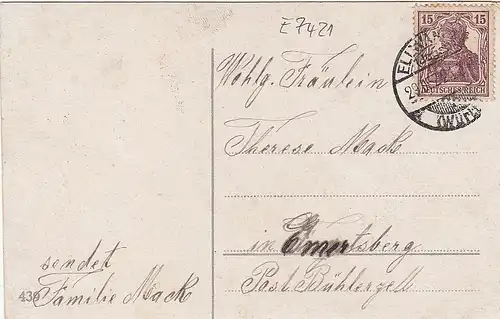 E 7421
15 15
DEUTSCHES REICH
ELLWANGEN
Wohlg. Fräulein
Therese Mack
in Emertsberg
Post Bühlerzell
sendet
Familie Mack
439